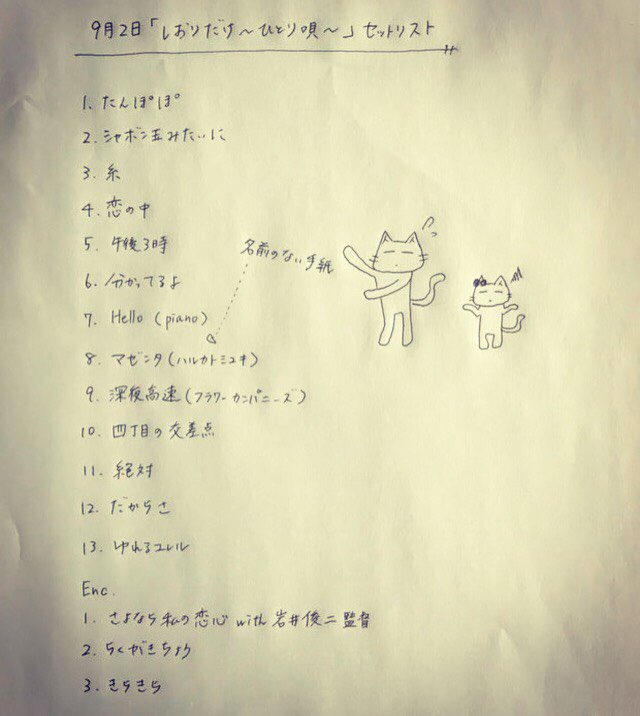 9月2日「しおりだけ〜ひとり唄〜」セットリスト
1. たんぽぽ
2. シャボン玉みたいに
3. 糸
4. 恋の中
5. 午後3時
名前のない手紙
6. 分かってるよ
7. Hello (piano)
8. マゼンタ(ハルカトミユキ)
9. 深夜高速(フラワーカンパニーズ)
10. 四丁目の交差点
11. 絶対
12. だからさ
13. ゆれるユレル
Enc.
1. さよなら私の恋心 with 岩井俊二監督
2. らくがきちょう
3. きらきら